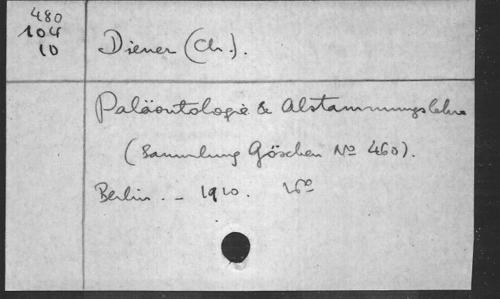 480
104
10
Diener (Ch.).
Paläontologie & Abstammungslehre
(Sammlung Göschen No 460).
Berlin. - 1910. 16o